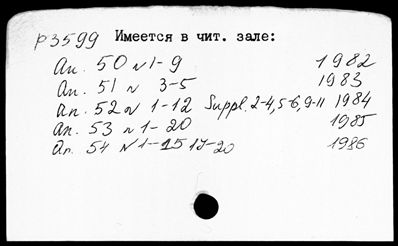 р3599 Имеется в чит. зале:
An. 50 N 1-9 1982
An. 51 N 3-5 1983
An. 52 N 1-12 Suppl. 2-4, 5-6, 9-11 1984
An. 53 N 1-20 1985
An. 54 N 1-15 17-20 1986